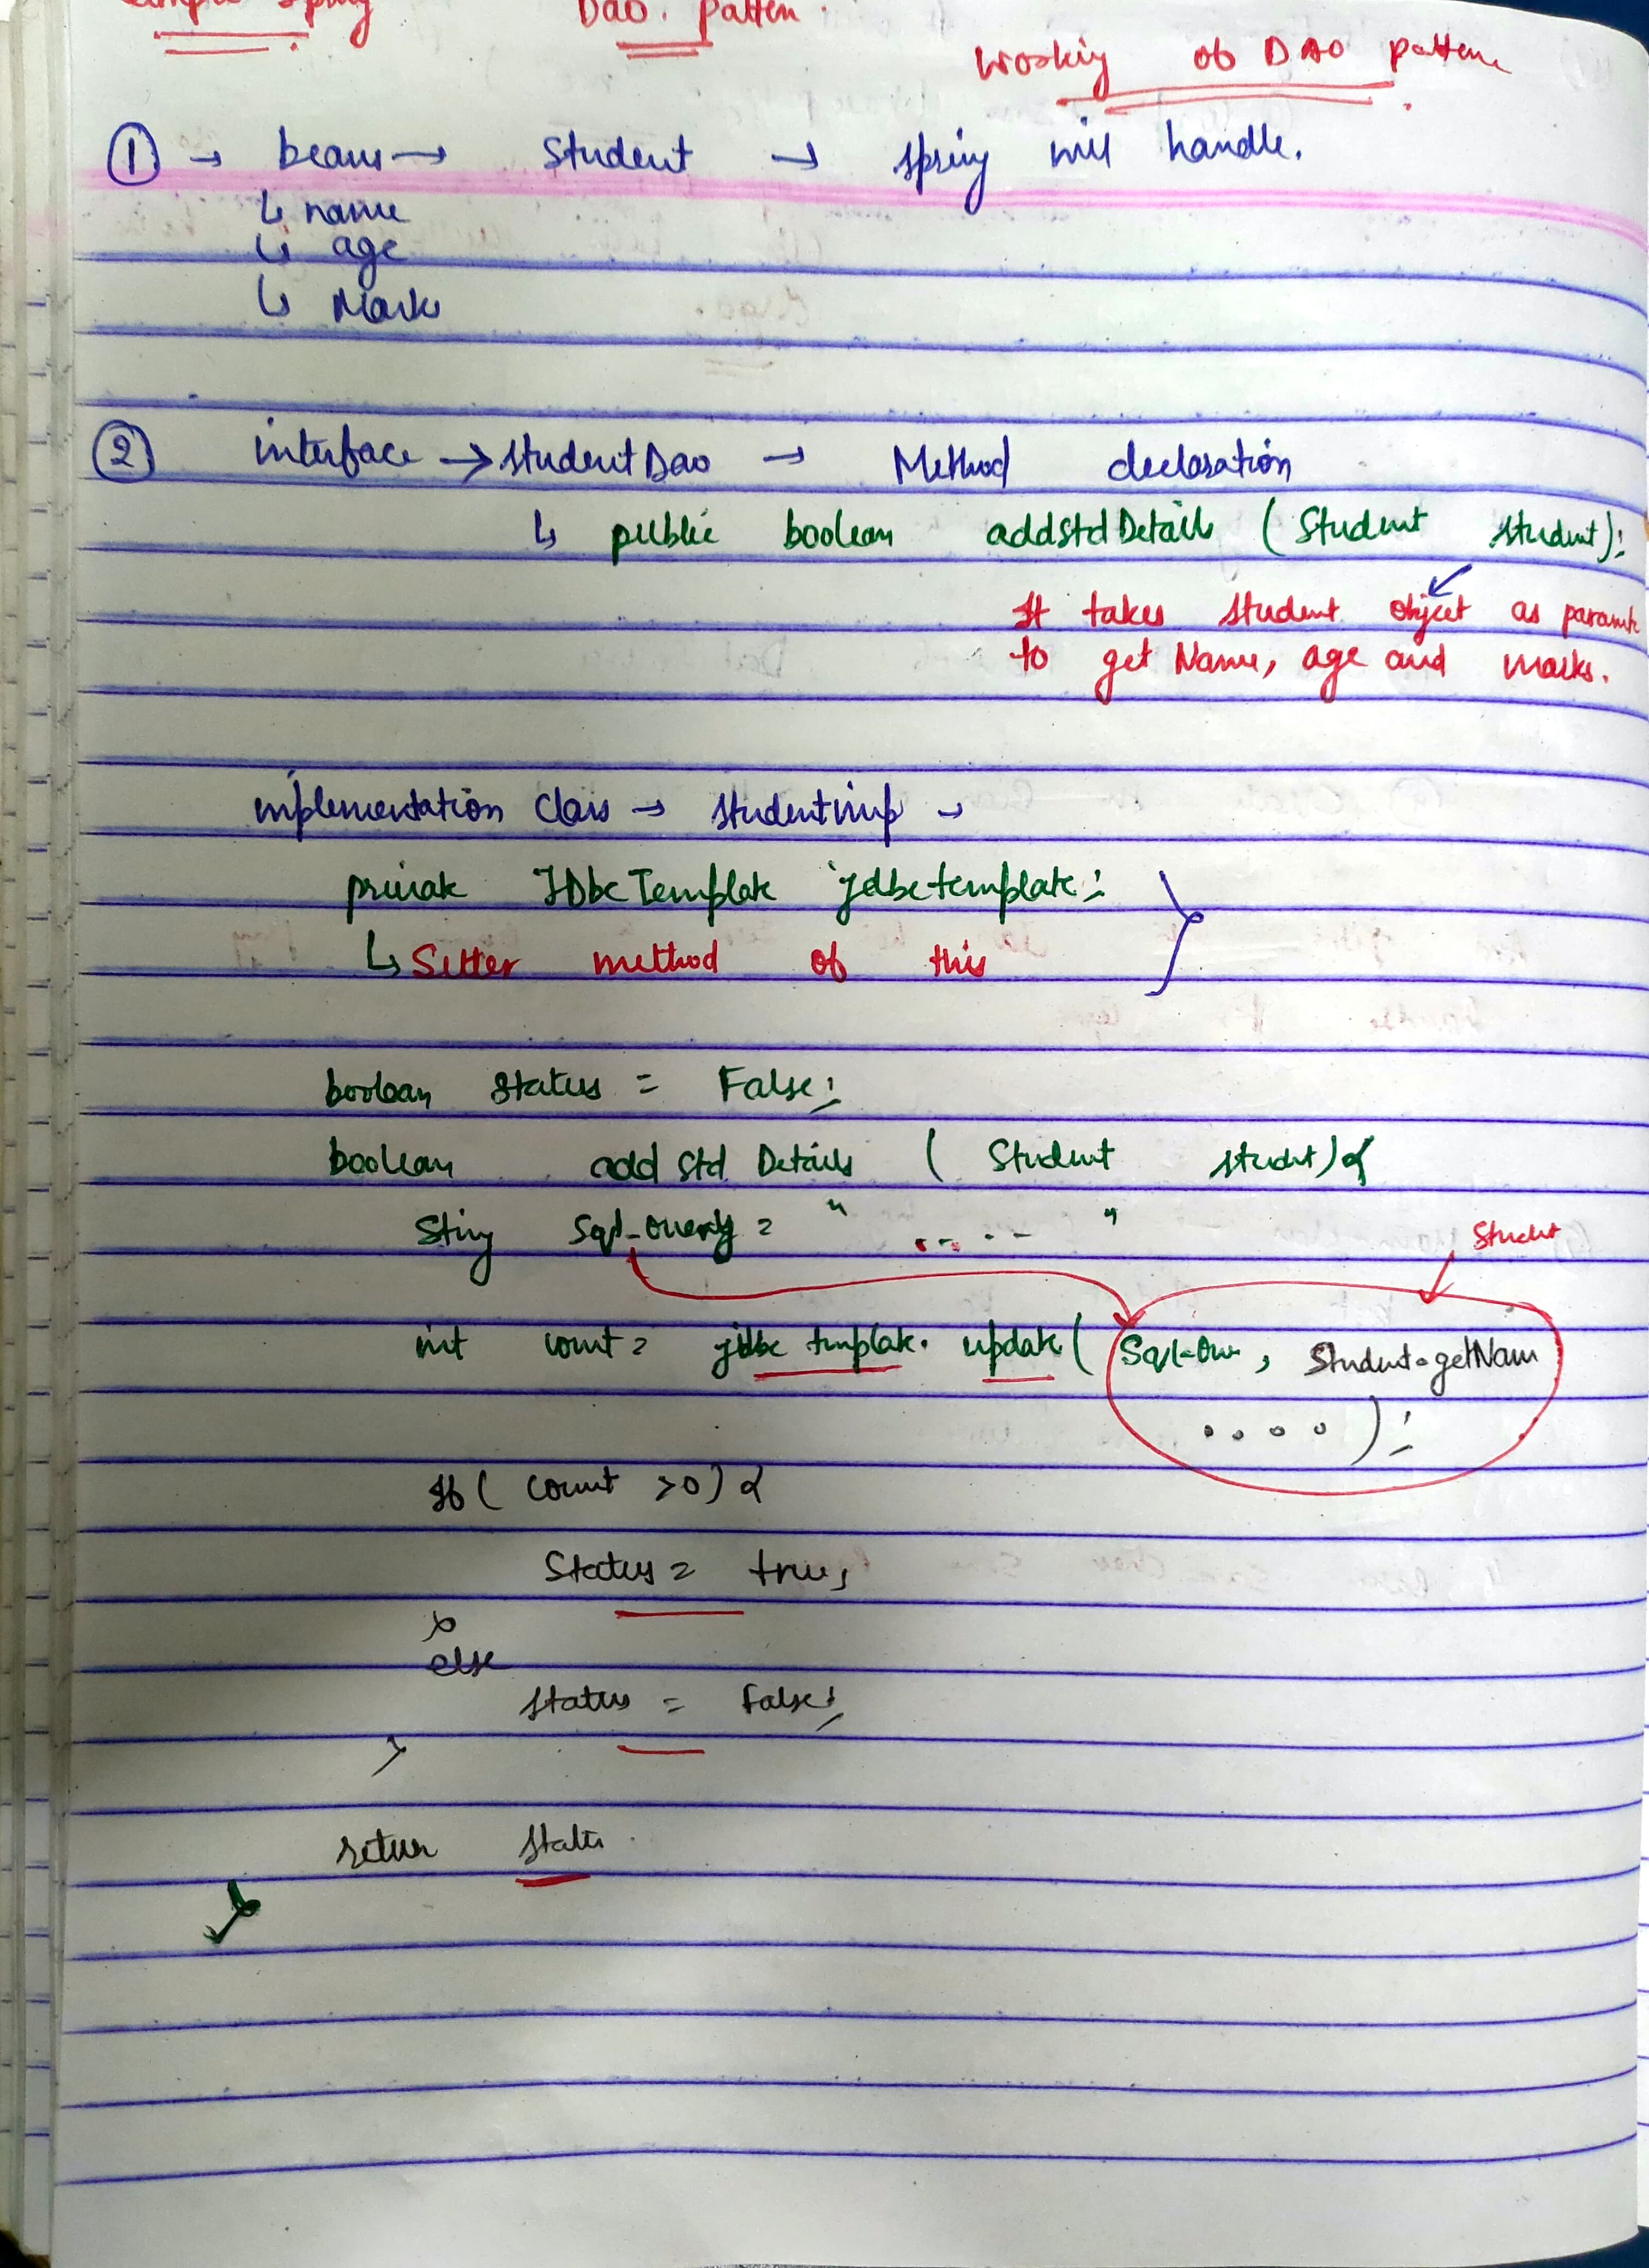 Simple Spring Dao. Patten.
Working of DAO patten
① → beans → Student → spring will handle.
↳ name
↳ age
↳ Marks
② interface → studentDao → Method declaration
↳ public boolean addstdDetails (Student student);
It takes student object as paramte
to get Name, age and marks.
implementation Class → studentimp →
private JDbcTemplate jdbctemplate;
↳ Setter method of this
boolean status = False;
boolean add std Details ( Student studnt) {
String Sql-Query = " .... "
Student
int count = jdbc template. update ( Sql-Que , Student.getNam
....) ;
If ( count >0) {
Status = true;
}
else
status = False;
}
return status.
}